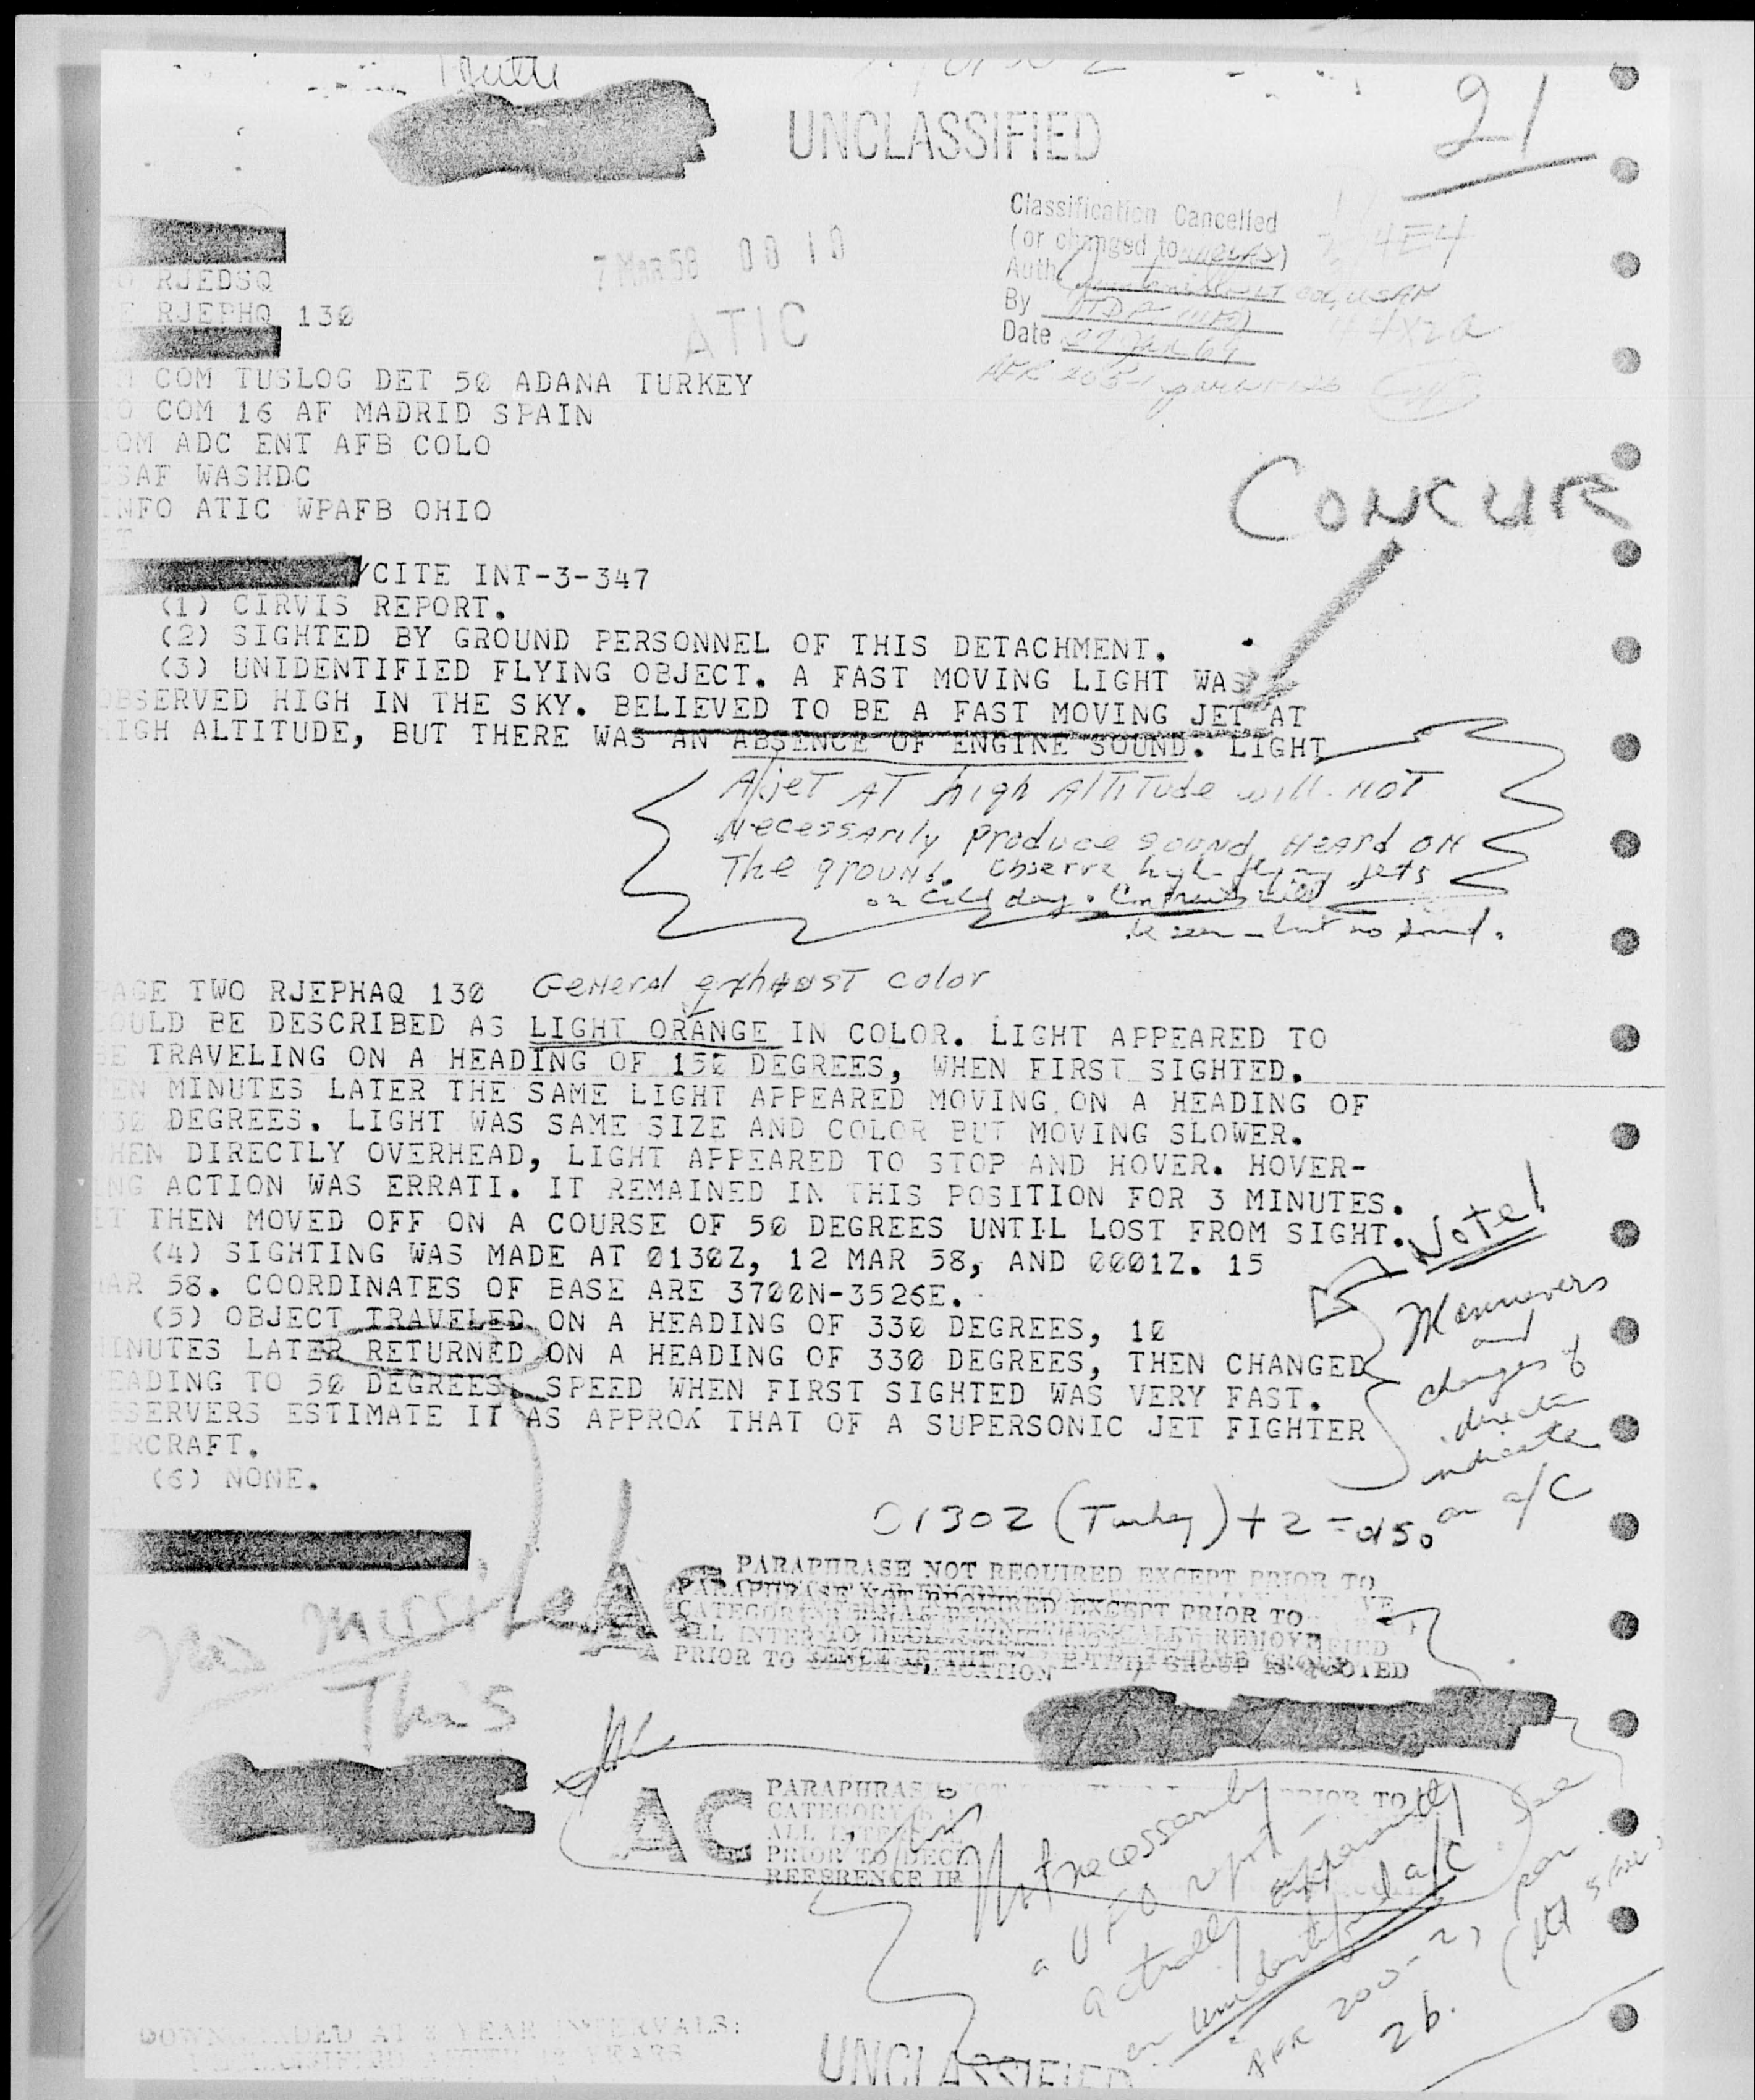 UNCLASSIFIED
21
Classification Cancelled
(or changed to
Auth
By
Date
7 MAR 58 00 10
ATIC
4E4
RJEDSQ
RJEPHQ 130
COM TUSLOG DET 50 ADANA TURKEY
COM 16 AF MADRID SPAIN
OM ADC ENT AFB COLO
SAF WASHDC
NFO ATIC WPAFB OHIO
CONCUR
/CITE INT-3-347
(1) CIRVIS REPORT.
(2) SIGHTED BY GROUND PERSONNEL OF THIS DETACHMENT.
(3) UNIDENTIFIED FLYING OBJECT. A FAST MOVING LIGHT WAS
OBSERVED HIGH IN THE SKY. BELIEVED TO BE A FAST MOVING JET AT
HIGH ALTITUDE, BUT THERE WAS AN ABSENCE OF ENGINE SOUND. LIGHT
A jet AT high AlTiTude will NOT
Necessarily produce sound HEARd ON
The ground. Observe high-flying jets
on cold day. Contrails will
be seen - but no sound.
PAGE TWO RJEPHAQ 130 General exhaust color
OULD BE DESCRIBED AS LIGHT ORANGE IN COLOR. LIGHT APPEARED TO
BE TRAVELING ON A HEADING OF 150 DEGREES, WHEN FIRST SIGHTED.
EN MINUTES LATER THE SAME LIGHT APPEARED MOVING ON A HEADING OF
30 DEGREES. LIGHT WAS SAME SIZE AND COLOR BUT MOVING SLOWER.
HEN DIRECTLY OVERHEAD, LIGHT APPEARED TO STOP AND HOVER. HOVER-
NG ACTION WAS ERRATI. IT REMAINED IN THIS POSITION FOR 3 MINUTES.
IT THEN MOVED OFF ON A COURSE OF 50 DEGREES UNTIL LOST FROM SIGHT.
(4) SIGHTING WAS MADE AT 0130Z, 12 MAR 58, AND 0001Z. 15
MAR 58. COORDINATES OF BASE ARE 3700N-3526E.
(5) OBJECT TRAVELED ON A HEADING OF 330 DEGREES, 10
INUTES LATER RETURNED ON A HEADING OF 330 DEGREES, THEN CHANGED
EADING TO 50 DEGREES. SPEED WHEN FIRST SIGHTED WAS VERY FAST.
BSERVERS ESTIMATE IT AS APPROX THAT OF A SUPERSONIC JET FIGHTER
AIRCRAFT.
(6) NONE.
Note!
Maneuvers
and
changes of
direction
indicate
an a/c
0130Z (Turkey) + 2 =
missile
This
AC
PARAPHRASE NOT REQUIRED EXCEPT PRIOR TO
PRIOR TO
AC
PARAPHRASE
CATEGORY B
PRIOR TO DECL
REFERENCE IF
PRIOR TO
Not necessarily
a UFO report -
actually apparently
an unidentified a/c. See
AFR 200-2, par
2b.
DOWNGRADED AT 3 YEAR INTERVALS:
UNCLASSIFIED